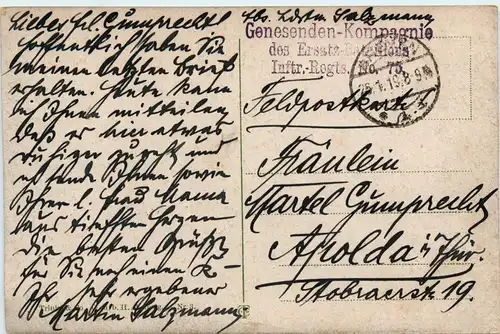 Lieber Frl. Gumprecht!
Hoffentlich haben Sie
meinen letzten Brief
erhalten. Heute kann
ich Ihnen mitteilen,
daß er hier etwas
ruhiger zugeht und
ich sende Ihnen sowie
Ihrer l. Frau Mama
aus tiefstem Herzen
die besten Grüße
für Sie noch einen K-
Ihr sehr ergebener
Martin Salzmann
Abs. Ldstm Salzmann
Genesenden-Kompagnie
des Ersatz-Bataillons
Inftr.-Regts. No. 75.
8-9N
Feldpostkarte
Fräulein
Martel Gumprecht
Apolda i/Thür.
Stobraerstr. 19.